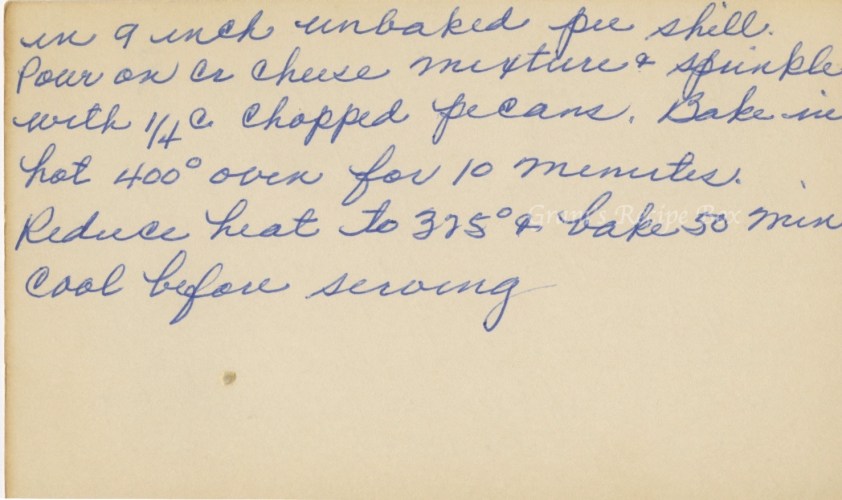 in 9 inch unbaked pie shell.
Pour on cr cheese mixture & sprinkle
with 1/4 c chopped pecans. Bake in
hot 400° oven for 10 minutes.
Reduce heat to 325° & bake 50 min
Cool before serving
Grant's Recipe Box